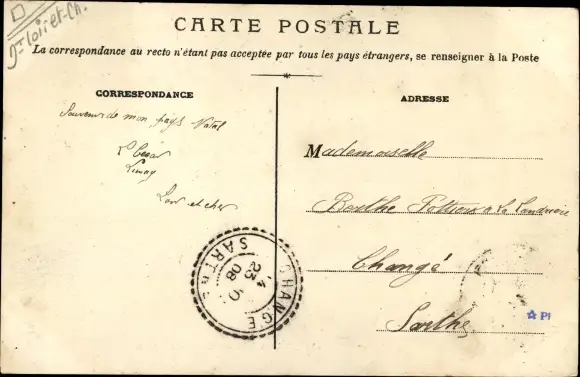 Loir et Ch.
CARTE POSTALE
La correspondance au recto n'étant pas acceptée par tous les pays étrangers, se renseigner à la Poste
CORRESPONDANCE
Souvenir de mon pays Natal
Loir et cher
ADRESSE
Mademoiselle
Berthe à la
Changé
Sarthe
CHANGÉ
SARTHE
23
08